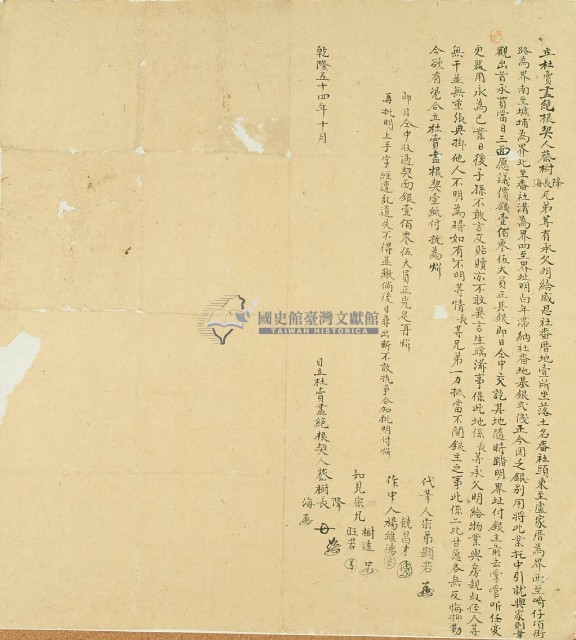 立杜賣盡絕根契人蔡樹長隆海兄弟等有承久明給感恩社番厝地壹所坐落土名番社頭東至盧家厝為界西至崎仔項街
路為界南至墟埔為界北至番社溝為界四至界址明白年帶納社番地基銀弍錢正今因乏銀別用將此業托中引就與家
觀出首承買當日三面愿議價錢壹佰零伍大員正其銀即日仝中交訖其地隨時踏明界址付銀主前去掌管听任憂
更器用永為己業日後子孫不敢言及貼贖亦不敢異言生端滋事保此地係長等承久明給物業與房親叔侄人等
無干並無重張典掛他人不明為碍如有不明等情長等兄弟一力抵當不關銀主之事此係二比甘愿各無反悔抑勒
今欲有憑合立杜賣盡根契壹紙付執為炤
即日仝中收過契面銀壹佰零伍大員正完足再炤
再批明上手字經遭乱遺失不得並繳倘後日尋出斷不敢執爭合加批明付炤
代筆人宗弟顯若
饒昌才
作中人楊維德
知見宗兄樹遠旺若
日立杜賣盡絕根契人蔡樹長隆海
乾隆五十四年十月
國史館臺灣文獻館
TAIWAN HISTORICA